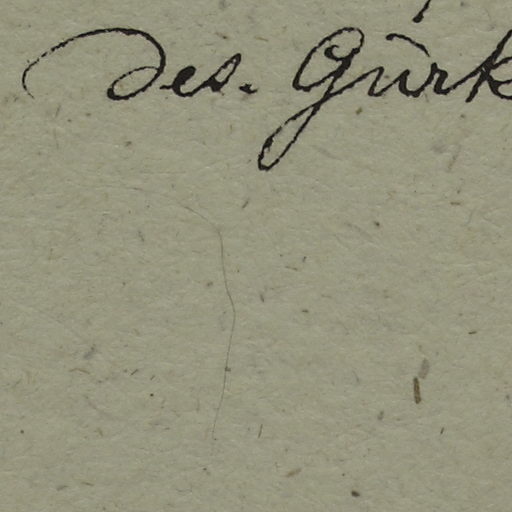 Des. Gürk